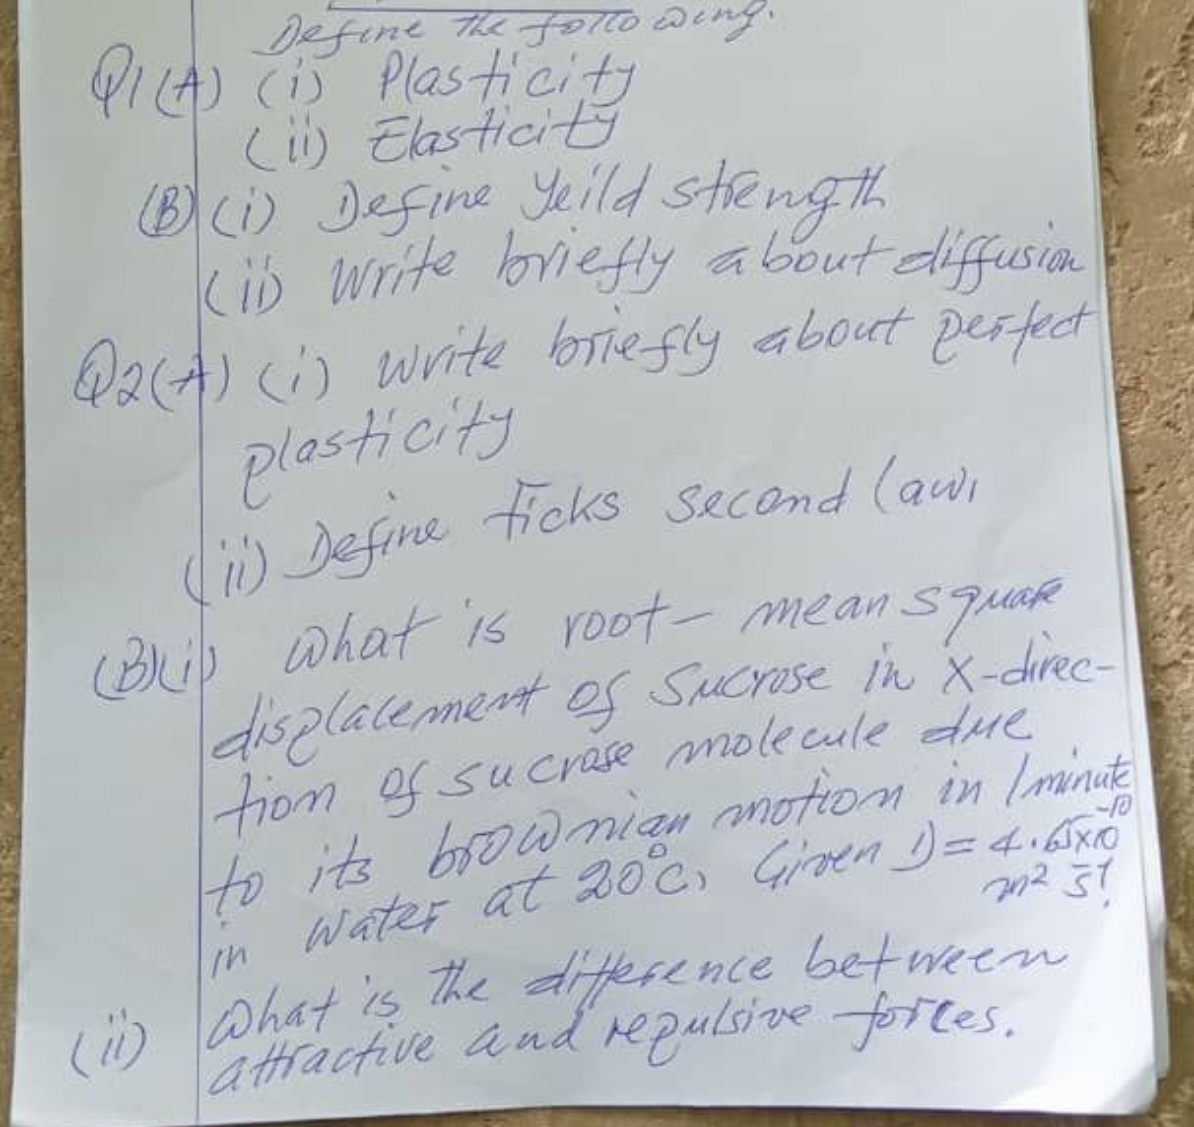 Define the following.
Q1(A) (i) Plasticity
(ii) Elasticity
(B) (i) Define Yeild strength
(ii) Write briefly about diffusion
Q2(A) (i) Write briefly about perfect
plasticity
(ii) Define ficks second law.
(B)(i) What is root-mean square
displacement of Sucrose in X-direc-
tion of sucrose molecule due
to its brownian motion in 1 minute
in water at 20°C. Given D = 4.65x10⁻¹⁰
m² s⁻¹.
(ii) What is the difference between
attractive and repulsive forces.